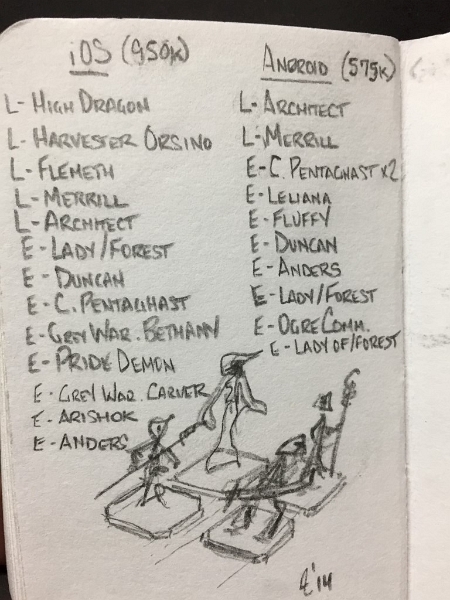 iOS (950K)
L- HIGH DRAGON
L- HARVESTER ORSINO
L- FLEMETH
L- MERRILL
L- ARCHITECT
E- LADY/FOREST
E - DUNCAN
E - C. PENTAGHAST
E - GREY WAR. BETHANY
E - PRIDE DEMON
E - GREY WAR. CARVER
E - ARISHOK
E - ANDERS
ANDROID (575K)
L- ARCHITECT
L- MERRILL
E- C. PENTAGHAST x2
E- LELIANA
E- FLUFFY
E - DUNCAN
E- ANDERS
E - LADY/FOREST
E - OGRE COMM.
E - LADY OF/FOREST
'14